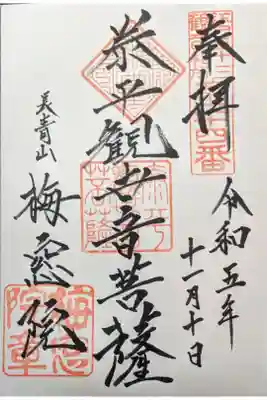 奉拝
令和五年
十一月十日
泰平観世音菩薩
長青山
梅窓院